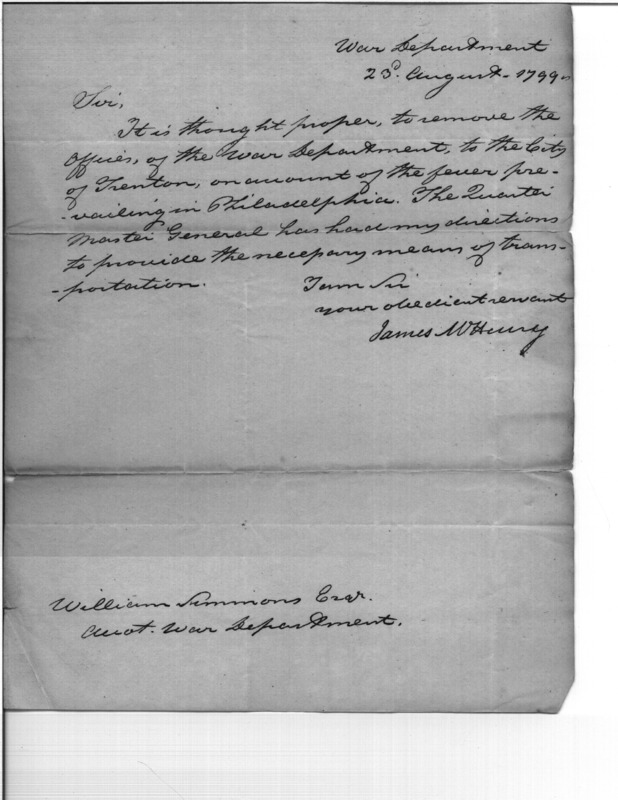 War Department
23d. August - 1799.
Sir,
It is thought proper, to remove the
offices, of the War Department, to the City
of Trenton, on account of the fever pre-
-vailing in Philadelphia. The Quarter
Master General has had my directions
to provide the necessary means of trans-
-portation.
I am Sir
your obedient servant
James McHenry
William Simmons Esqr.
Acct. War Department.